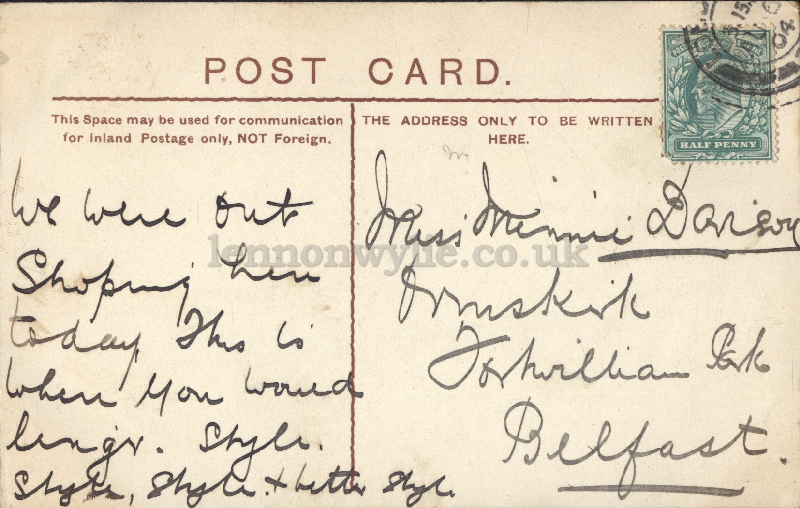 POST CARD.
This Space may be used for communication
for Inland Postage only, NOT Foreign.
THE ADDRESS ONLY TO BE WRITTEN
HERE.
HALF PENNY
04
We were out
Shoping here
today. This is
where you would
lingr. Style.
Style, Style. + better Style.
Miss Minnie Davison
Ormskirk
Fortwilliam Park
Belfast.
lennonwylie.co.uk